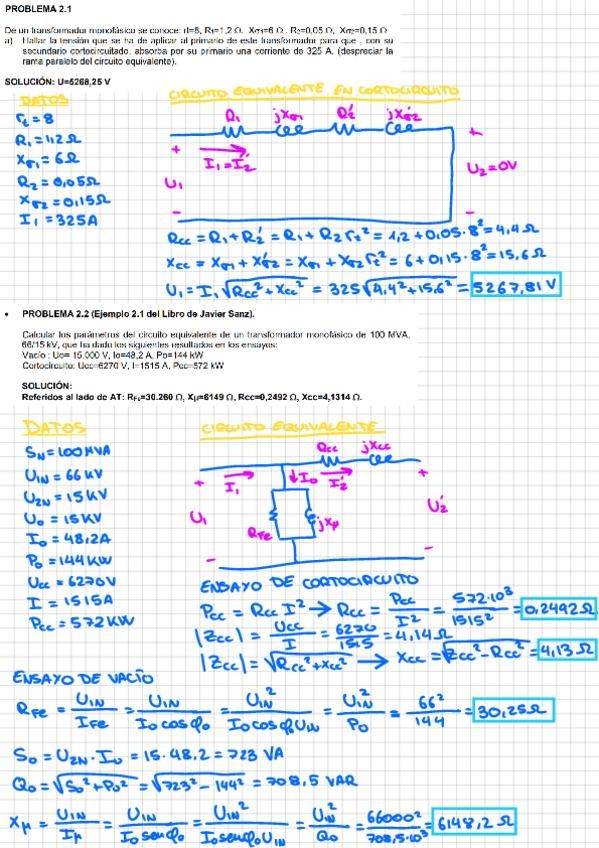 PROBLEMA 2.1
De un transformador monofásico se conoce: rt=8, R1=1,2 Ω, Xσ1=6 Ω, R2=0,05 Ω, Xσ2=0,15 Ω
a) Hallar la tensión que se ha de aplicar al primario de este transformador para que, con su
secundario cortocircuitado, absorba por su primario una corriente de 325 A. (despreciar la
rama paralelo del circuito equivalente).
SOLUCIÓN: U=5268,25 V
DATOS
CIRCUITO EQUIVALENTE EN CORTOCIRCUITO
rt = 8
R1 = 1,2 Ω
Xσ1 = 6 Ω
R2 = 0,05 Ω
Xσ2 = 0,15 Ω
I1 = 325 A
R1 jXσ1 R2' jXσ2'
+ I1 = I2' +
U1 U2 = 0V
- -
Rcc = R1 + R2' = R1 + R2 rt² = 1,2 + 0,05 · 8² = 4,4 Ω
Xcc = Xσ1 + Xσ2' = Xσ1 + Xσ2 rt² = 6 + 0,15 · 8² = 15,6 Ω
U1 = I1 √(Rcc² + Xcc²) = 325 √(4,4² + 15,6²) = 5267,81 V
• PROBLEMA 2.2 (Ejemplo 2.1 del Libro de Javier Sanz).
Calcular los parámetros del circuito equivalente de un transformador monofásico de 100 MVA,
66/15 kV, que ha dado los siguientes resultados en los ensayos:
Vacío: Uo= 15.000 V, Io=48,2 A, Po=144 kW
Cortocircuito: Ucc=6270 V, I=1515 A, Pcc=572 kW
SOLUCIÓN:
Referidos al lado de AT: RFe=30.260 Ω, Xμ=6149 Ω, Rcc=0,2492 Ω, Xcc=4,1314 Ω.
DATOS
CIRCUITO EQUIVALENTE
SN = 100 MVA
U1N = 66 kV
U2N = 15 kV
U0 = 15 kV
I0 = 48,2 A
P0 = 144 kW
Ucc = 6270 V
I = 1515 A
Pcc = 572 kW
Rcc jXcc
+ I1 I0 I2' +
U1 RFe jXμ U2'
- -
ENSAYO DE CORTOCIRCUITO
Pcc = Rcc I² → Rcc = Pcc / I² = 572·10³ / 1515² = 0,2492 Ω
|Zcc| = Ucc / I = 6270 / 1515 = 4,14 Ω
|Zcc| = √(Rcc² + Xcc²) → Xcc = √(Zcc² - Rcc²) = 4,13 Ω
ENSAYO DE VACÍO
RFe = U1N / IFe = U1N / (I0 cos φ0) = U1N² / (I0 cos φ0 U1N) = U1N² / P0 = 66² / 144 = 30,25 Ω
S0 = U2N · I0 = 15 · 48,2 = 723 VA
Q0 = √(S0² + P0²) = √(723² - 144²) = 708,5 VAR
Xμ = U1N / Iμ = U1N / (I0 sen φ0) = U1N² / (I0 sen φ0 U1N) = U1N² / Q0 = 66000² / 708,5·10³ = 6148,2 Ω